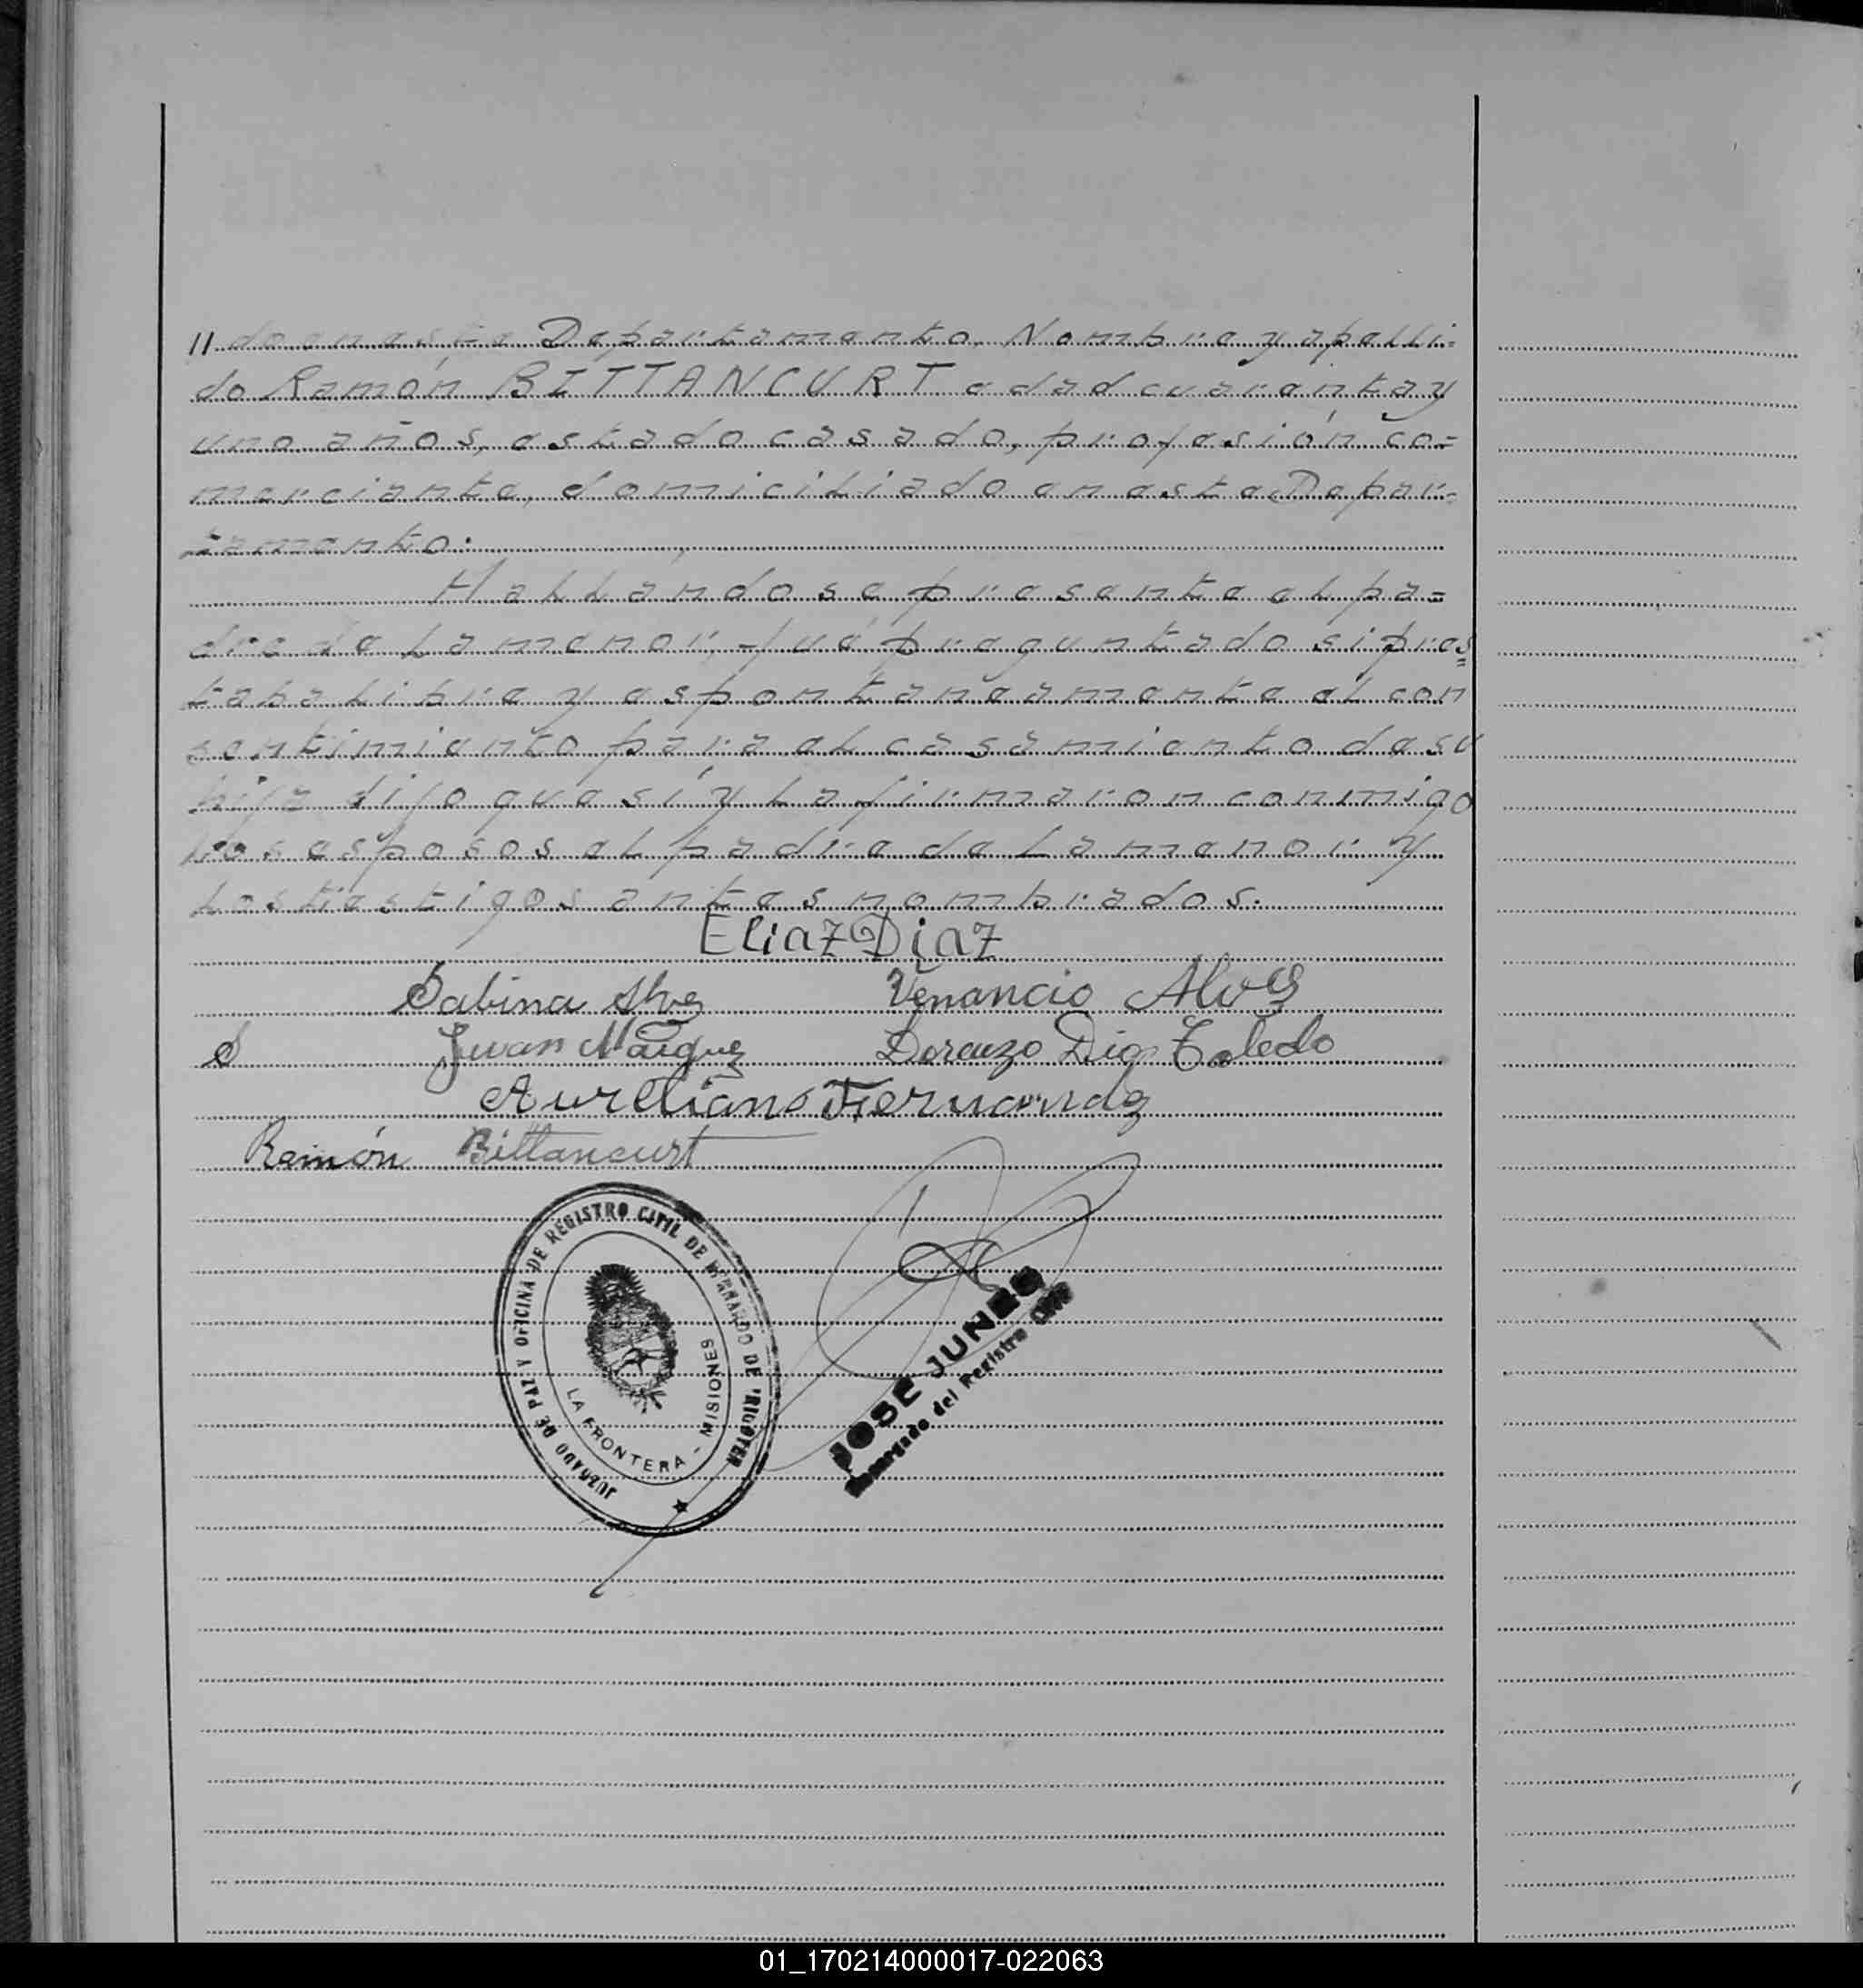 // do en este Departamento. Nombre y apelli-
do Ramón BITTANCURT edad cuarenta y
uno años, estado casado, profesión co=
merciante, domiciliado en este Depar-
tamento.
Hallándose presente el pa=
dre de la menor, fué preguntado si pres
taba libre y espontaneamente el con
sentimiento para el casamiento de su
hija dijo que sí y la firmaron conmigo
los esposos el padre de la menor y
los testigos antes nombrados.
Eliaz Diaz
Sabina Alvez Venancio Alvez
S Juan Márquez Lorenzo Dio Toledo
Aureliano Fernandez
Ramón Bittancurt
JUZGADO DE PAZ Y OFICINA DE REGISTRO CIVIL DE BERNARDO DE IRIGOYEN
LA FRONTERA - MISIONES
JOSE JUNES
Encargado del Registro Civil
01_170214000017-022063